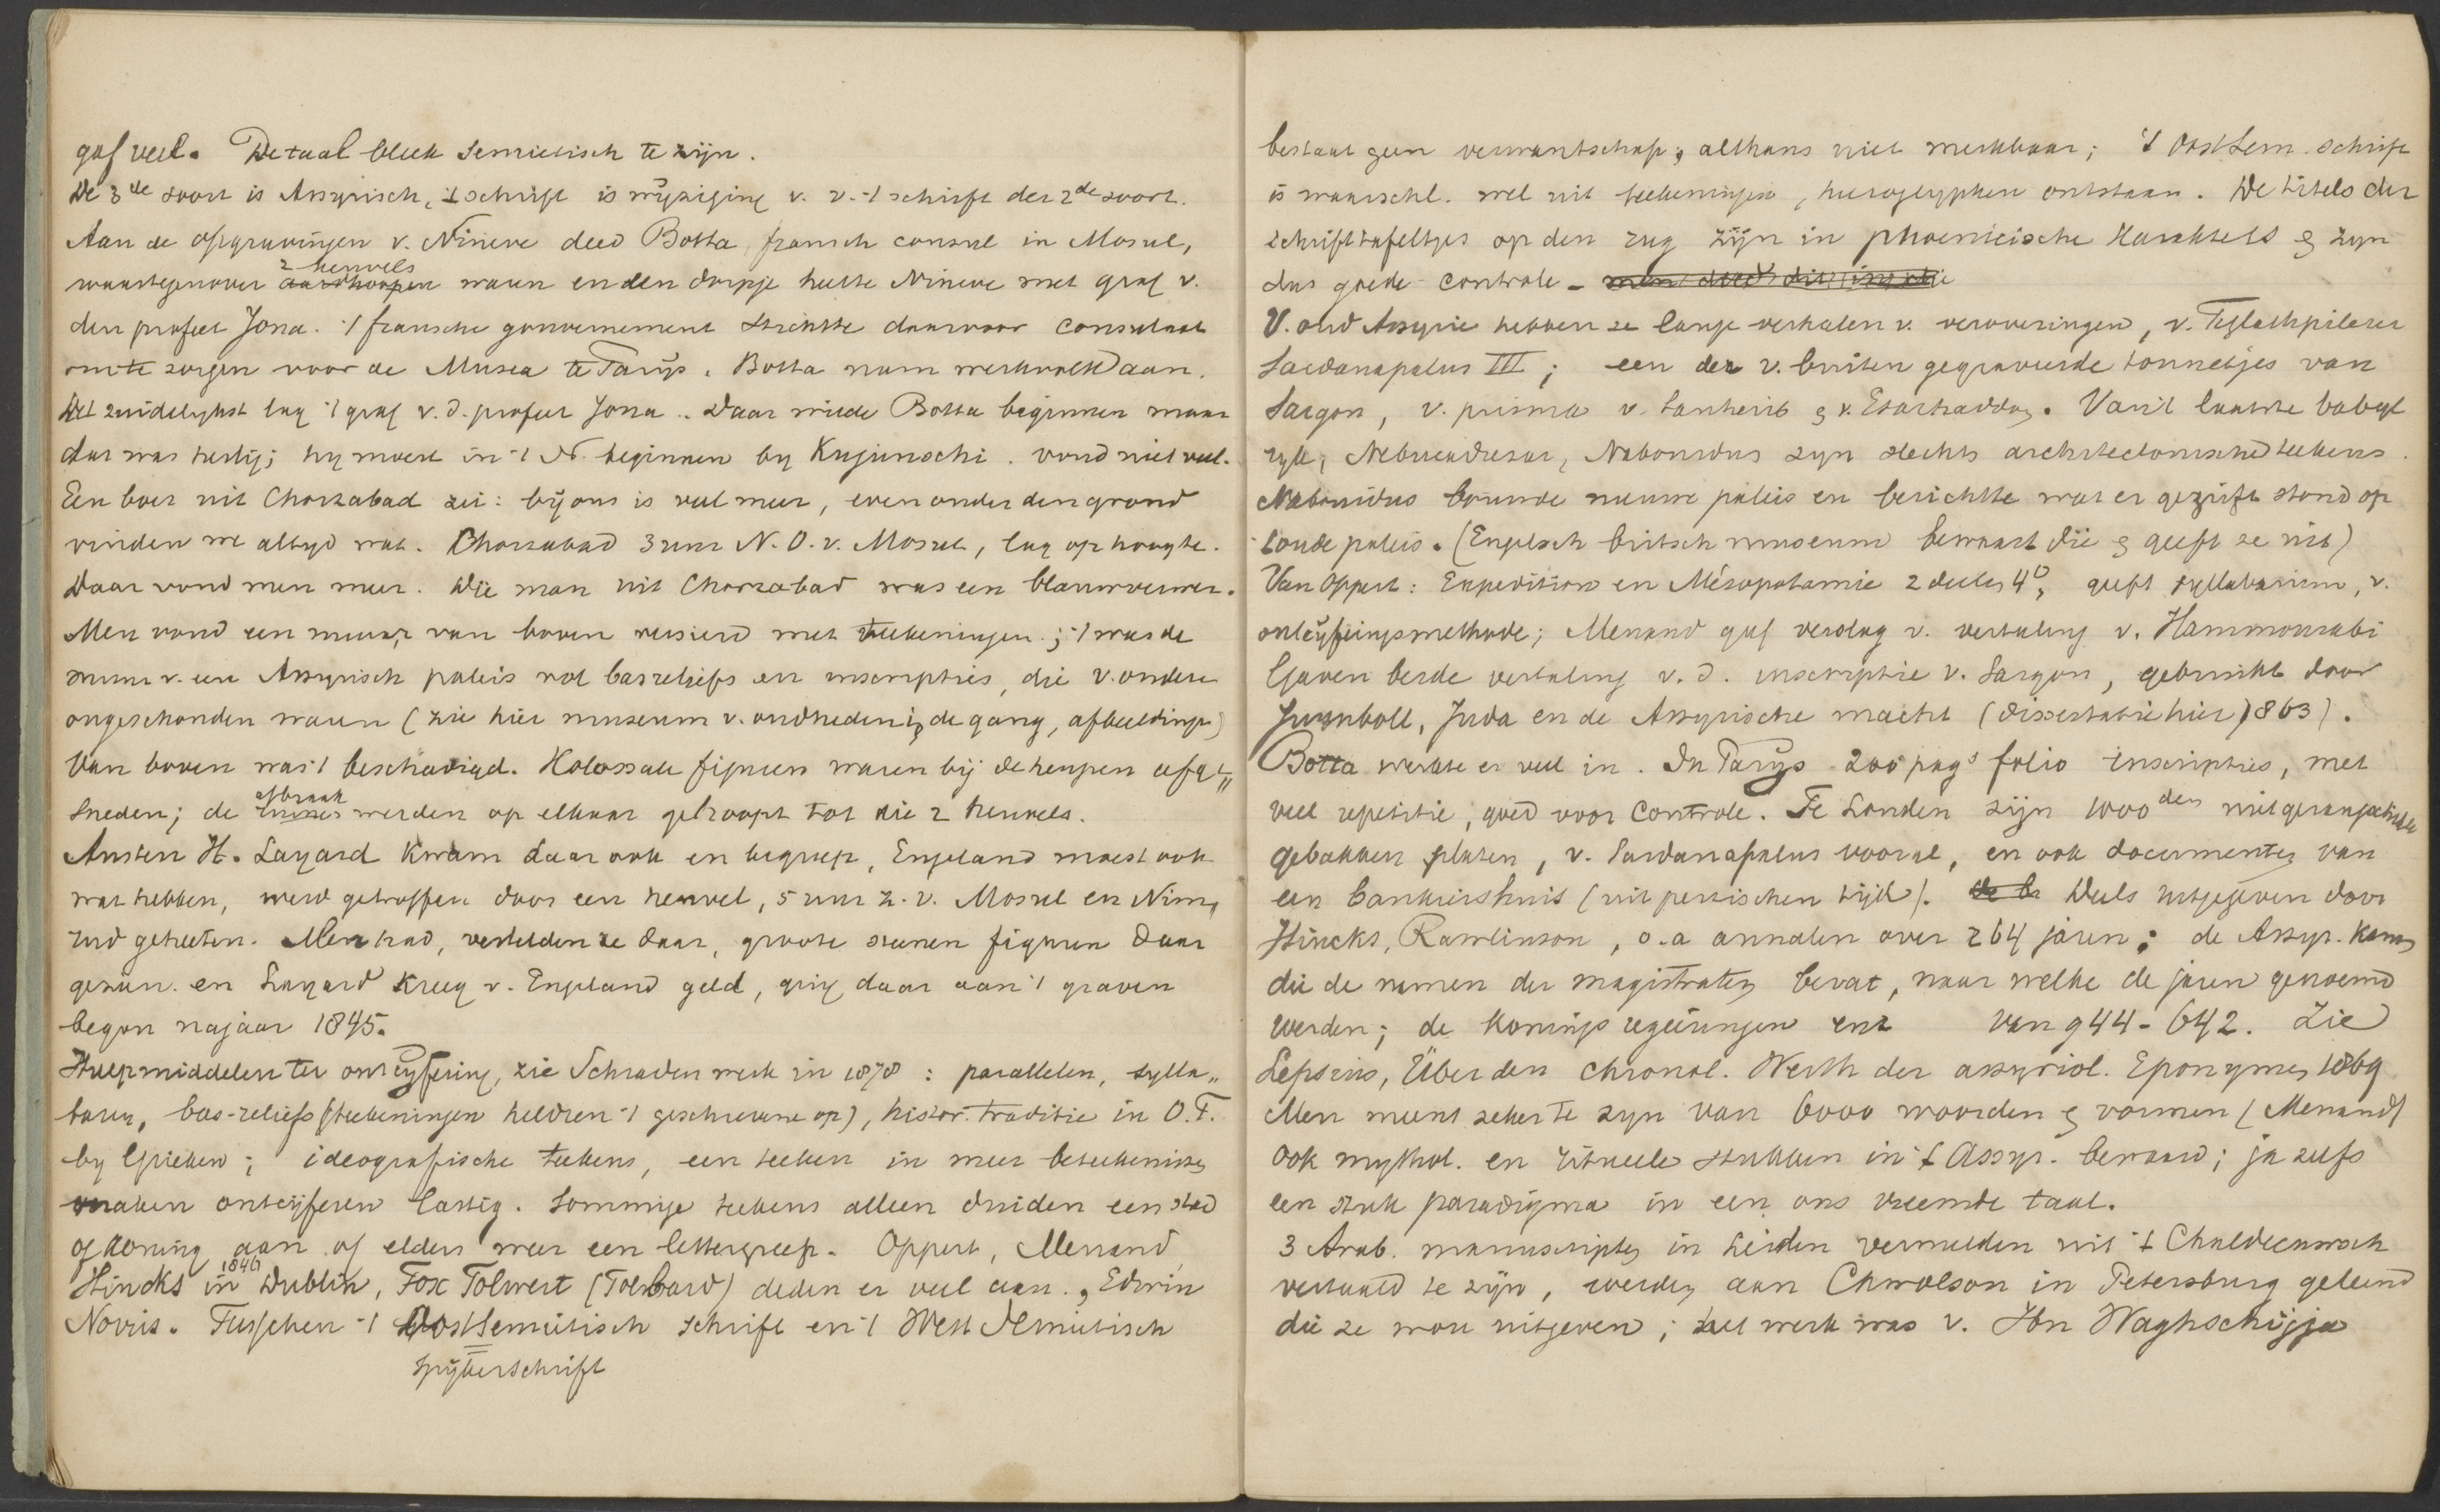 gaf veel. De taal bleek Semietisch te zijn.
De 3de soort is Assyrisch, 't schrift is wijziging v. v. 't schrift der 2de soort.
Aan de opgravingen v. Nineve deed Botta, fransch consul in Mosul,
waartegenover aardhoopen 2 heuvels waren en een dorpje heette Nineve met graf v.
den profeet Jona. 't fransche gouvernement strichtte daarvoor consulaat
om te zorgen voor de Musea te Parijs. Botta nam werkvolk aan.
Het zuidelykst lag 't graf v. d. profeet Jona. Daar wilde Botta beginnen maar
dat was heilig; hy moest in 't N. beginnen by Kujunschi. vond niet veel.
Een boer uit Chorzabad zei: bij ons is veel meer, even onder den grond
vinden we altyd wat. Chorzabad 3 uur N.O. v. Mosul, lag op hoogte.
Daar vond men meer. Die man uit Chorzabad was een blauwverwer.
Men vond een muur, van boven versierd met teekeningen; 't was de
muur v. een Assyrisch paleis vol basreliefs en inscripties, die v. onderen
ongeschonden waren (zie hier museum v. oudheden in de gang, afbeeldingen)
Van boven was 't beschadigd. Kolossale figuren waren bij de heupen afge„
sneden; de afbraak werden op elkaar gehoopt tot die 2 heuvels.
Austen H. Layard kwam daar ook en begreep, Engeland moest ook
wat hebben, werd getroffen door een heuvel, 5 uur Z. v. Mosul en Nim,
rud geheeten. Men had, vertelden ze daar, groote steenen figuren daar
gezien en Layard kreeg v. Engeland geld, ging daar aan 't graven
begon najaar 1845.
Hulpmiddelen ter ontcyfering, zie Schraders werk in 1878: parallelen, sylla„
baren, bas-reliefs (teekeningen helderen 't geschrevene op), histor. traditie in O.T.
by Grieken; ideografische teekens, een teeken in meer beteekenissen
maken ontcijferen lastig. Sommige teekens alleen duiden een stad
of koning aan of elders weer een lettergreep. Oppert, Menand,
Hincks in 1846 Dublin, Fox Tolwert (Tolbard) deden er veel aan., Edwin
Norris. Tusschen 't Oost Semietisch schrift en 't West Semietisch
= spijkerschrift
bestaat geen verwantschap, althans niet merkbaar; 't Oost Sem. schrift
is waarschl. wel uit teekeningen, hieroglyphen ontstaan. De titels der
schrifttafeltjes op den rug zijn in phoenicische karakters & zyn
dus goede controle - men deed dit in die
V. oud Assyrie hebben ze lange verhalen v. veroveringen, v. Teglathpilezer
Sardanapalus III; een der v. buiten gegraveerde tonnetjes van
Sargon, v. prisma v. Sanherib & v. Esarhaddon. Van 't laatste babyl
ryk, Nebucadresar, Nabonidus zyn slechts architectonische teekens.
Nabonidus bouwde nieuwe paleis en berichtte wat er gegrift stond op
't oude paleis. (Engelsch britsch museum bewaart die & geeft ze uit)
Van Oppert: Expedition en Mésopotamie 2 deelen 4o, geeft syllabarium, v.
ontcijferingsmethode; Menand gaf verslag v. vertaling v. Hammourabi
Gaven beide vertaling v. d. inscriptie v. Sargon, gebruikt door
Juynboll, Juda en de Assyrische macht (dissertatie hier 1863).
Botta werkte er veel in. In Parijs 200 pag's folio inscripties, met
veel repetitie, goed voor controle. Te Londen zijn 1000den
gebakken platen, v. Sardanapalus vooral, en ook documenten van
een bankiershuis (uit perzischen tijd). de b Deels uitgegeven door
Hincks, Rawlinson, o.a annalen over 264 jaren; de Assyr. kanon
die de namen der magistraten bevat, naar welke de jaren genoemd
werden; de konings regeeringen enz van 944 - 642. Zie
Lepsius, Über den chronol. Werth der assyriol. Eponymen 1869
Men meent zeker te zyn van 6000 woorden & vormen (Menand)
Ook mythol. en ritueele stukken in 't Assyr. bewaard; ja zelfs
een stuk paradigma in een ons vreemde taal.
3 Arab. manuscripten in Leiden vermelden uit 't Chaldeeuwsch
vertaald te zijn, werden aan Chwolson in Petersburg geleend
die ze wou uitgeven; het werk was v. Ibn Waghschijja